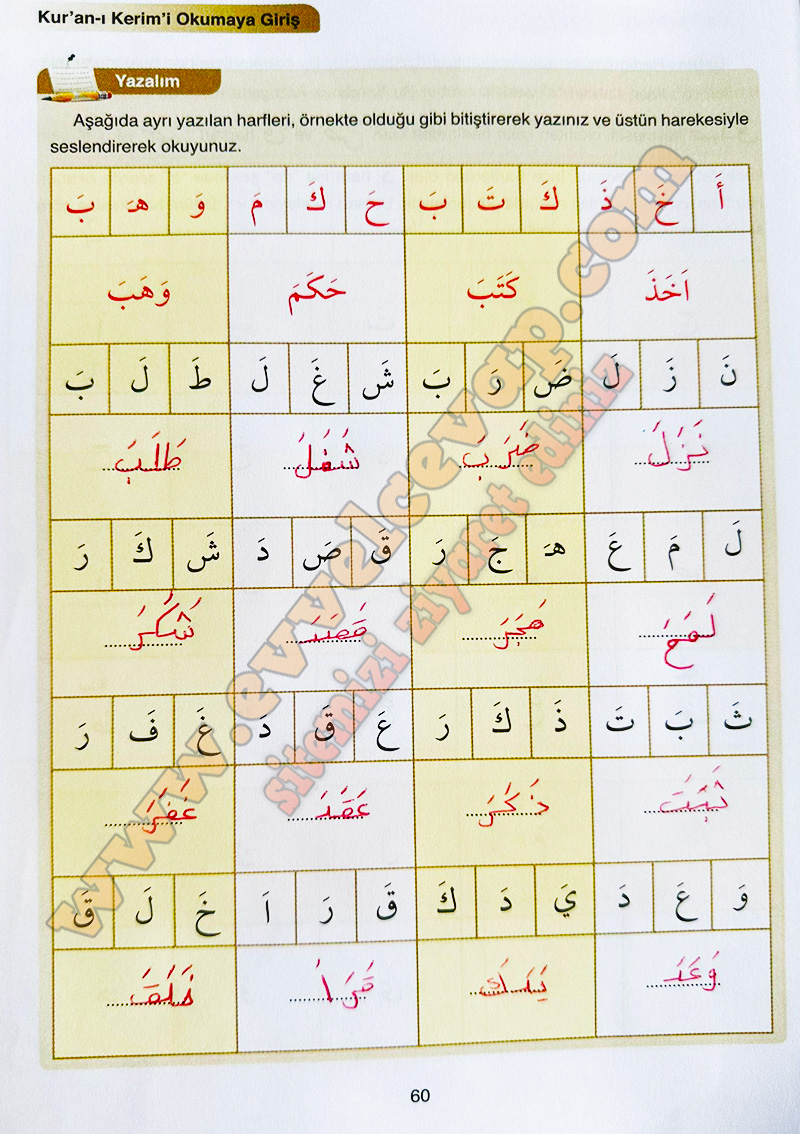 Kur’an-ı Kerim’i Okumaya Giriş
Yazalım
Aşağıda ayrı yazılan harfleri, örnekte olduğu gibi bitiştirerek yazınız ve üstün harekesiyle
seslendirerek okuyunuz.
أَ خَ ذَ كَ تَ بَ حَ كَ مَ وَ هـَ بَ
اَخَذَ كَتَبَ حَكَمَ وَهَبَ
نَ زَ لَ ضَ رَ بَ شَ غَ لَ طَ لَ بَ
نَزَلَ ضَرَبَ شَغَلَ طَلَبَ
لَ مَ عَ هـَ جَ رَ قَ صَ دَ شَ كَ رَ
لَمَعَ هَجَرَ قَصَدَ شَكَرَ
ثَ بَ تَ ذَ كَ رَ عَ قَ دَ غَ فَ رَ
ثَبَتَ ذَكَرَ عَقَدَ غَفَرَ
وَ عَ دَ يَ دَ كَ قَ رَ اَ خَ لَ قَ
وَعَدَ يَدَكَ قَرَاَ خَلَقَ
www.evvelcevap.com
sitemizi ziyaret ediniz
60